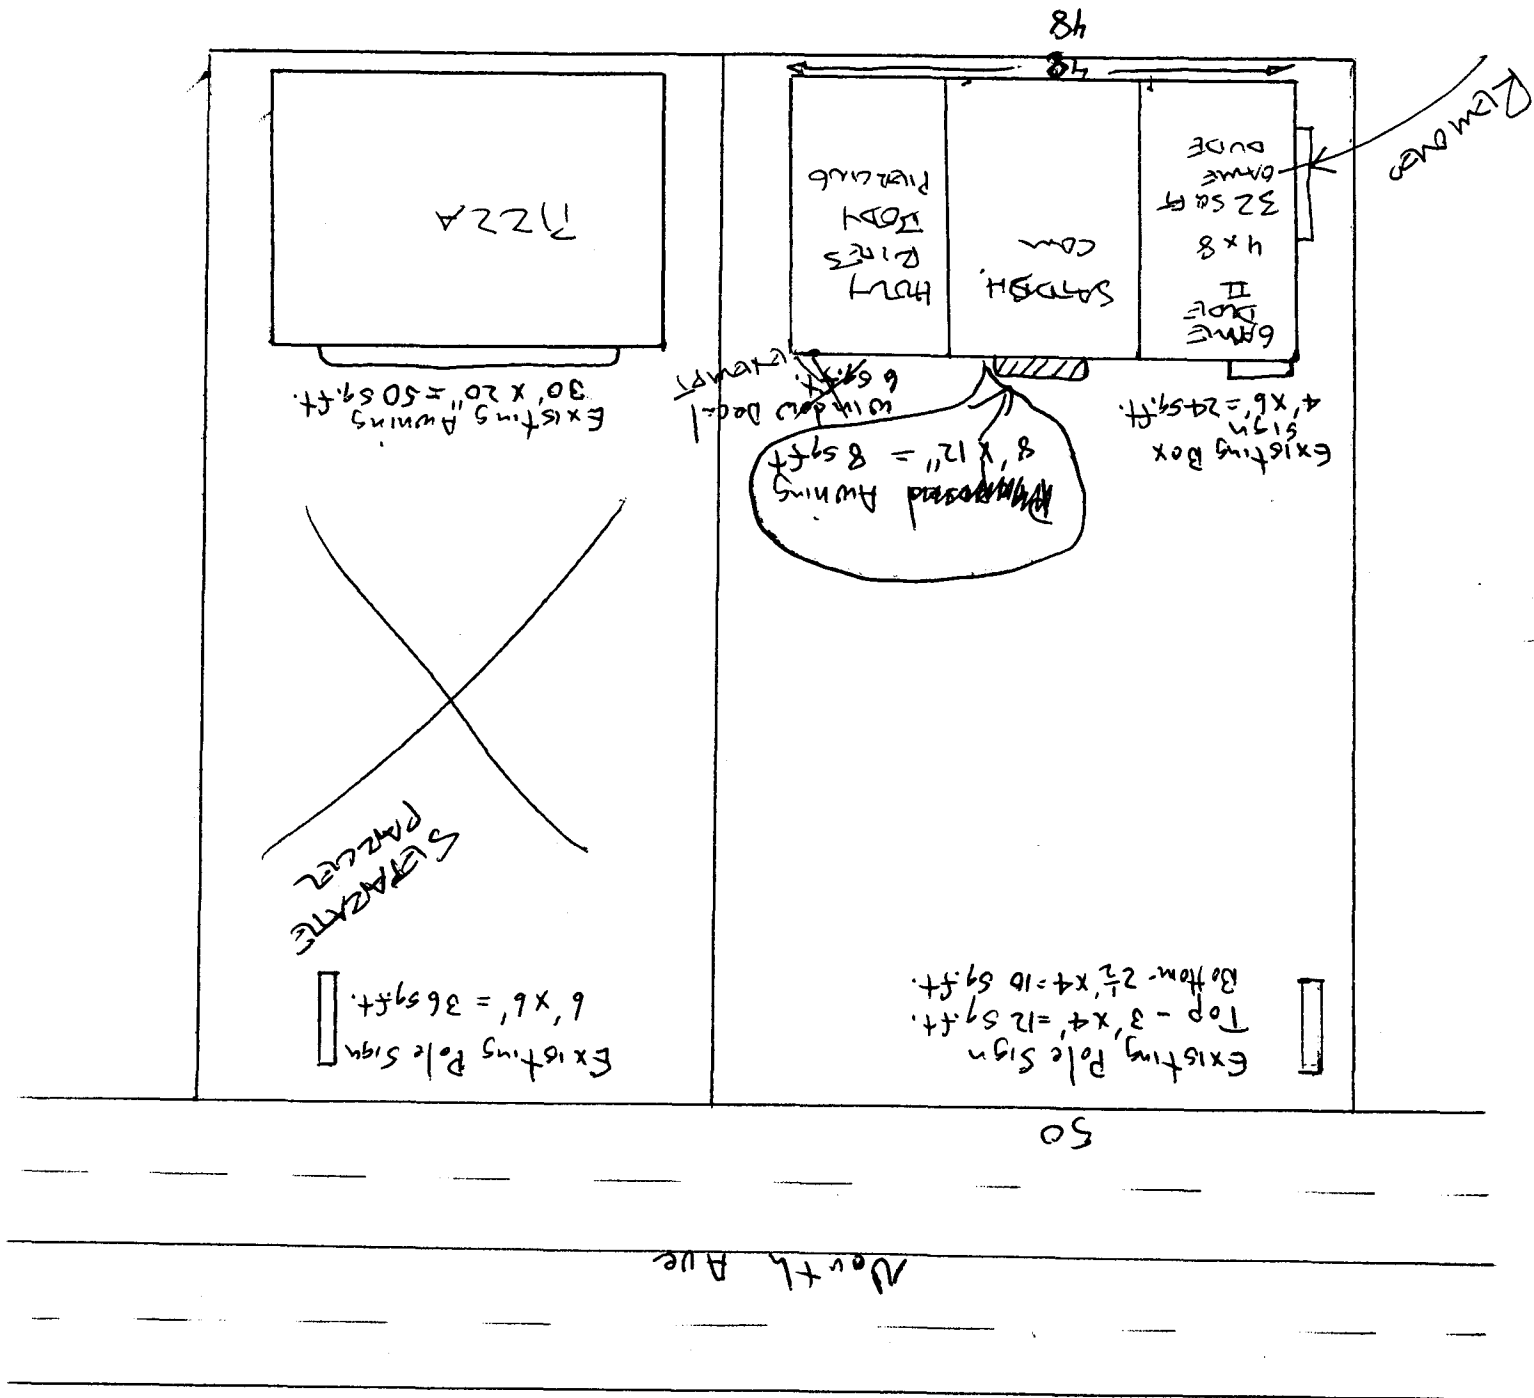 North Ave
50
Existing Pole Sign
Top - 3' x 4' = 12 sq.ft.
Bottom - 2½' x 4 = 10 sq.ft.
Existing Pole Sign
6' x 6' = 36 sq.ft.
SEPARATE
PARCEL
Awning
8' x 12" = 8 sqft
Existing Box
sign
4' x 6' = 24 sq.ft.
Window Decal
6 sq.ft.
EXEMPT
Existing Awning
30' x 20" = 50 sq.ft.
GAME
DUDE
II
4 x 8
32 sq ft
GAME
DUDE
COM
HOLY
RITES
BODY
PIERCING
PIZZA
REMOVED
48